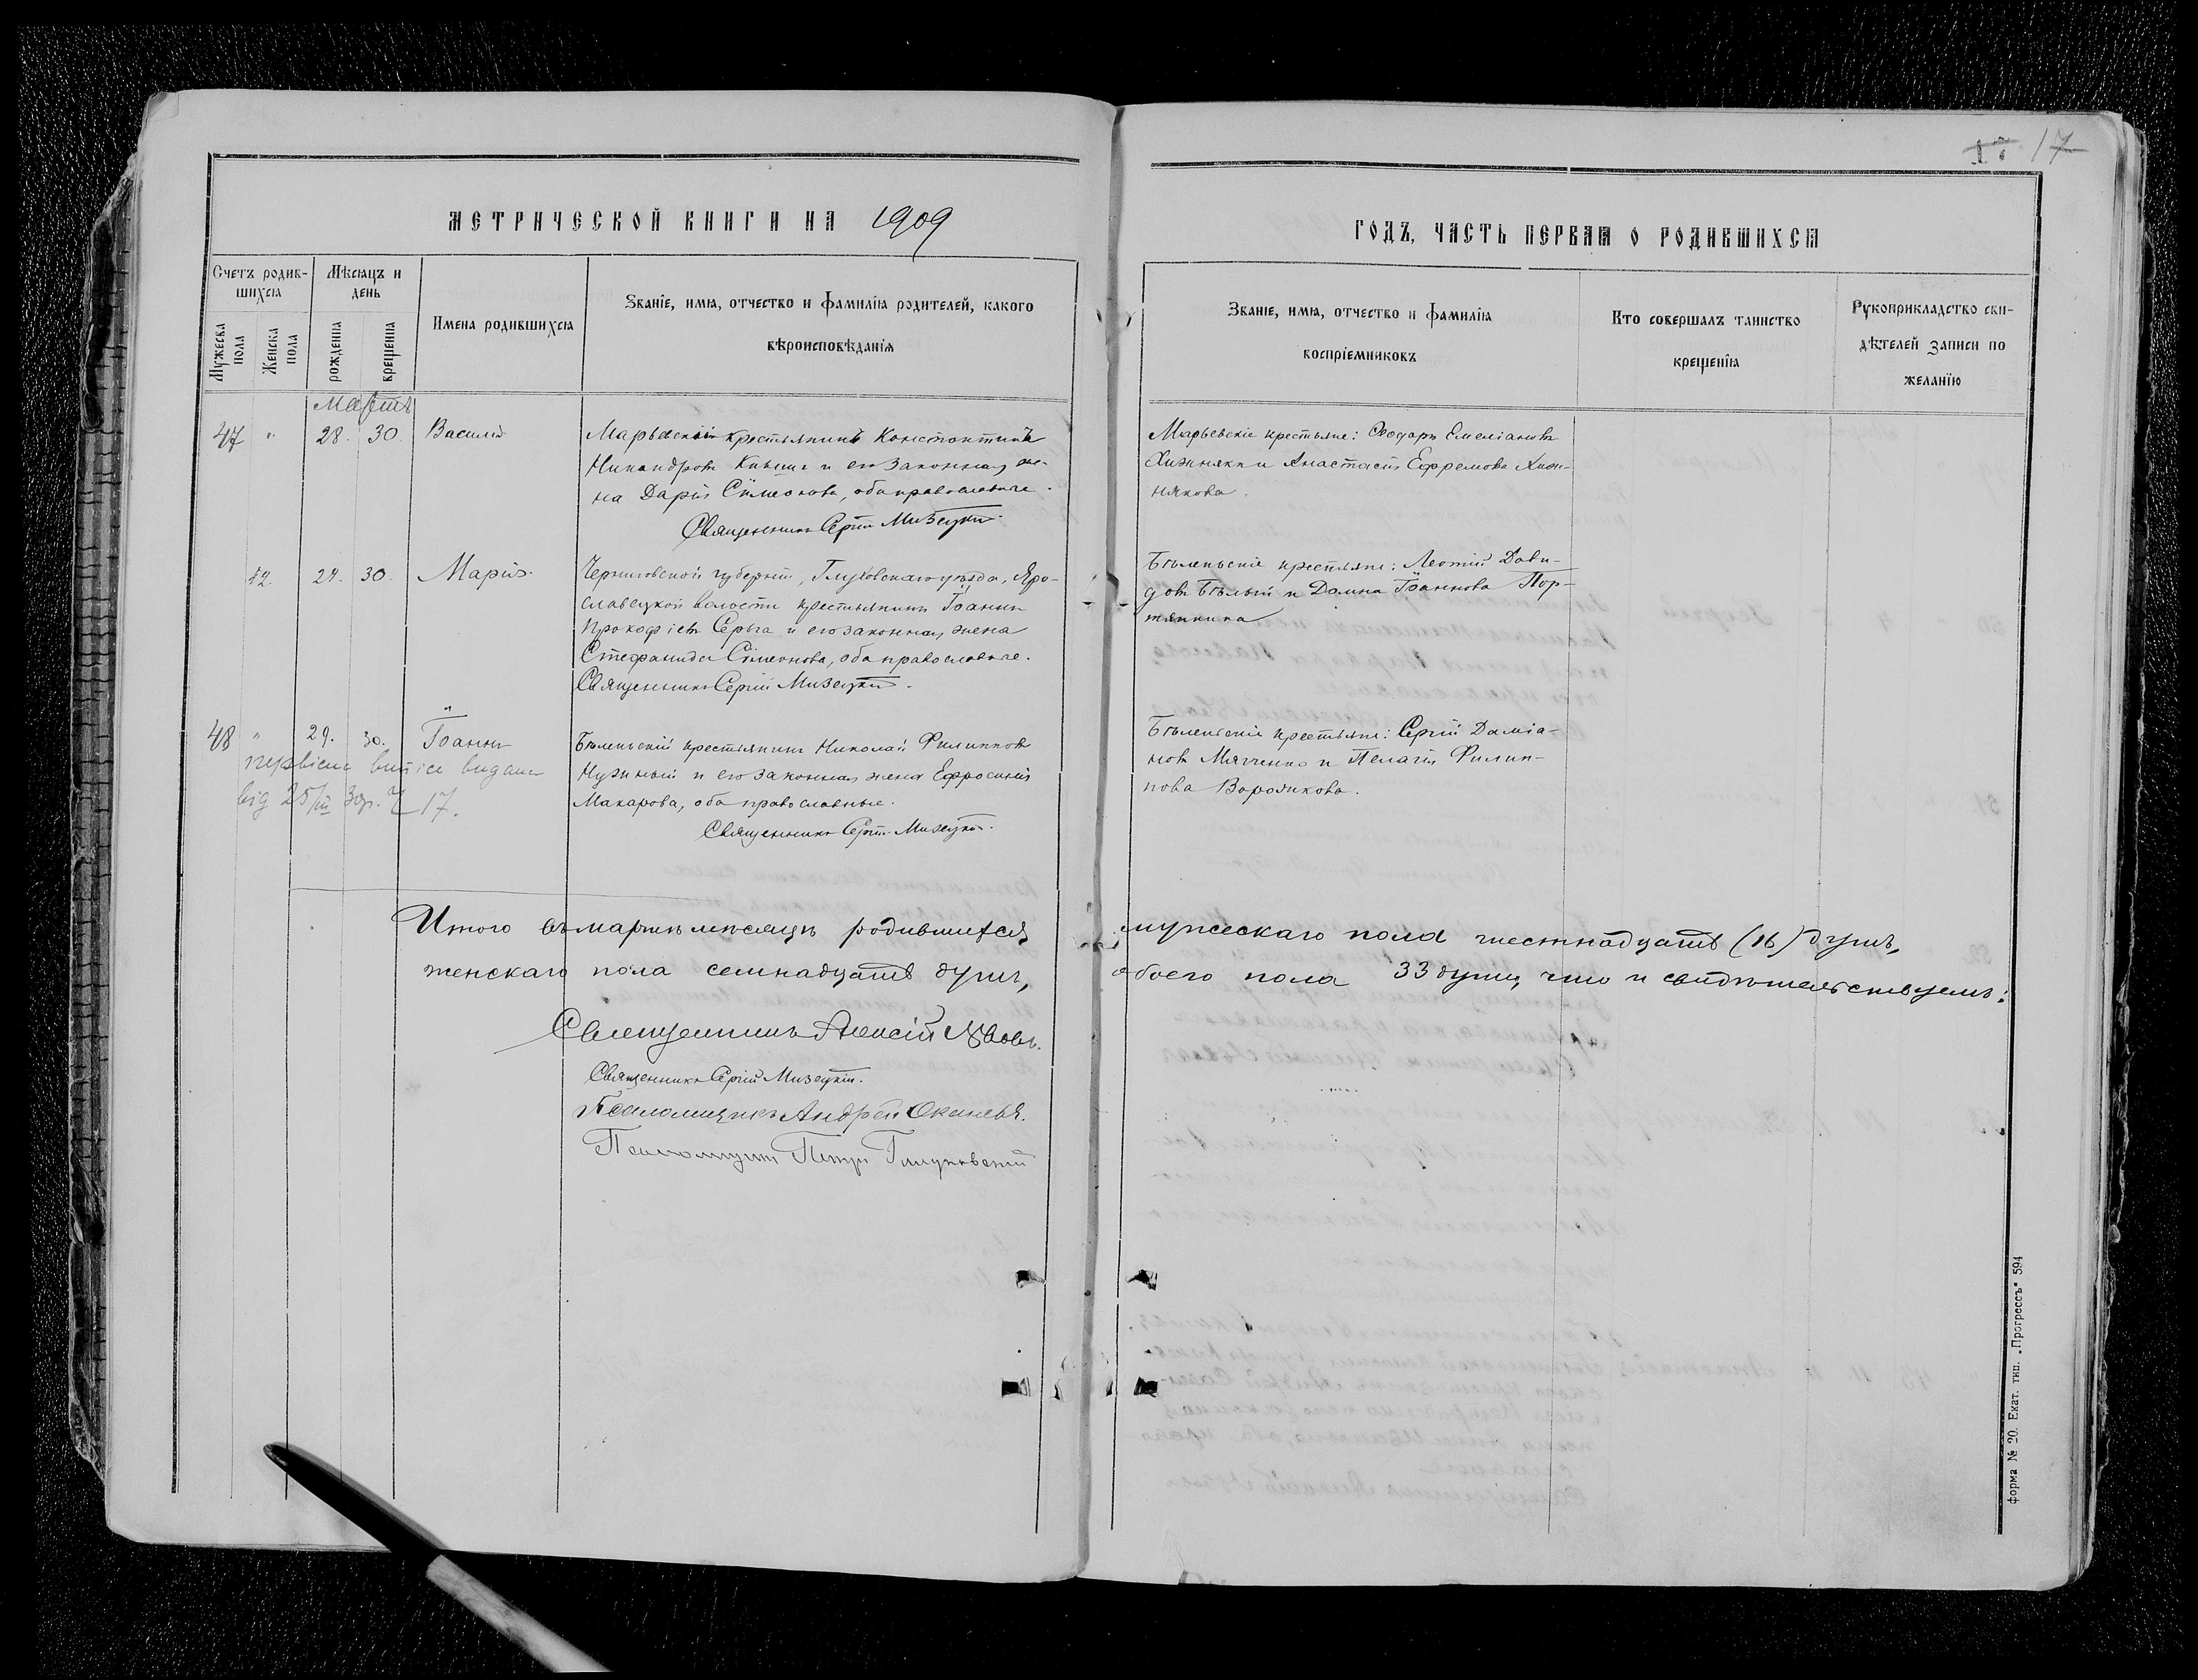 17 17
МЕТРИЧЕСКОЙ КНИГИ НА 1909
ГОДЪ, ЧАСТЬ ПЕРВАЯ О РОДИВШИХСЯ
Счетъ родив-
шихся
Мужеска пола
Женска пола
Мѣсяцъ и
день
рожденїя
крещенїя
Имена родившихся
Званїе, имя, отчество и фамилїя родителей, какого
вѣроисповѣданїя
Званїе, имя, отчество и фамилїя
воспрїемниковъ
Кто совершалъ таинство
крещенїя
Рукоприкладство сви-
дѣтелей записи по
желанїю
Мартъ
47 " 28. 30. Василій
Марьевскій крестьянинъ Константинъ
Никандровъ и его законная же-
на Дарія Сѵмеонова, оба православные.
Священникъ Сергій Мизецкій.
Марьевскіе крестьяне: Ѳеодоръ Емеліановъ
Хижнякъ и Анастасія Ефремова Хиж-
някова.
42. 24. 30. Марія.
Черниговской губерніи, Глуховскаго уѣзда, Яро-
славецкой волости крестьянинъ Іоаннъ
Прокофіевъ и его законная жена
Стефанида Сѵмеонова, оба православные.
Священникъ Сергій Мизецкій.
Бѣленьскіе крестьяне: Леонтій Дави-
довъ Бѣлый и Домна Іоаннова Пор-
тянкина
48 " 29. 30. Іоаннъ
Бѣленьскій крестьянинъ Николай Филипповъ
Нужный и его законная жена Евфросинія
Макарова, оба православные.
Священникъ Сергій Мизецкій.
Бѣленьскіе крестьяне: Сергій Даміа-
новъ и Пелагія Филип-
пова
видана
від 25/III 30р. 17.
Итого въ мартѣ мѣсяцѣ родившихся мужескаго пола шестнадцать (16) душъ,
женскаго пола семнадцать душъ, обоего пола 33 души, что и свидѣтельствуемъ:
Священникъ Алексій Львовъ.
Священникъ Сергій Мизецкій.
Псаломщикъ Андрей
Псаломщикъ Петръ
Форма № 20. Екат. тип. „Прогрессъ" 594